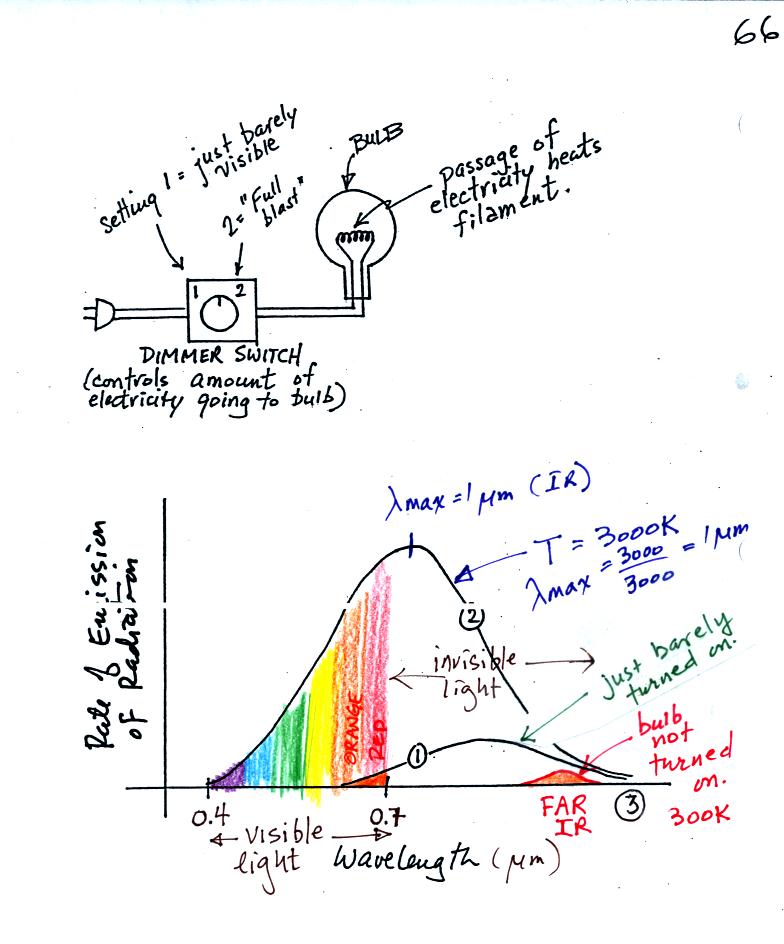 66
setting 1 = just barely
visible
2= "Full
blast"
BULB
passage of
electricity heats
filament.
1 2
DIMMER SWITCH
(controls amount of
electricity going to bulb)
λmax = 1 μm (IR)
T = 3000K
λmax = 3000/3000 = 1 μm
Rate of Emission
of Radiation
2
invisible
light
just barely
turned on.
ORANGE
RED
1
bulb
not
turned
on.
300K
0.4
0.7
FAR
IR
3
visible
light
Wavelength (μm)